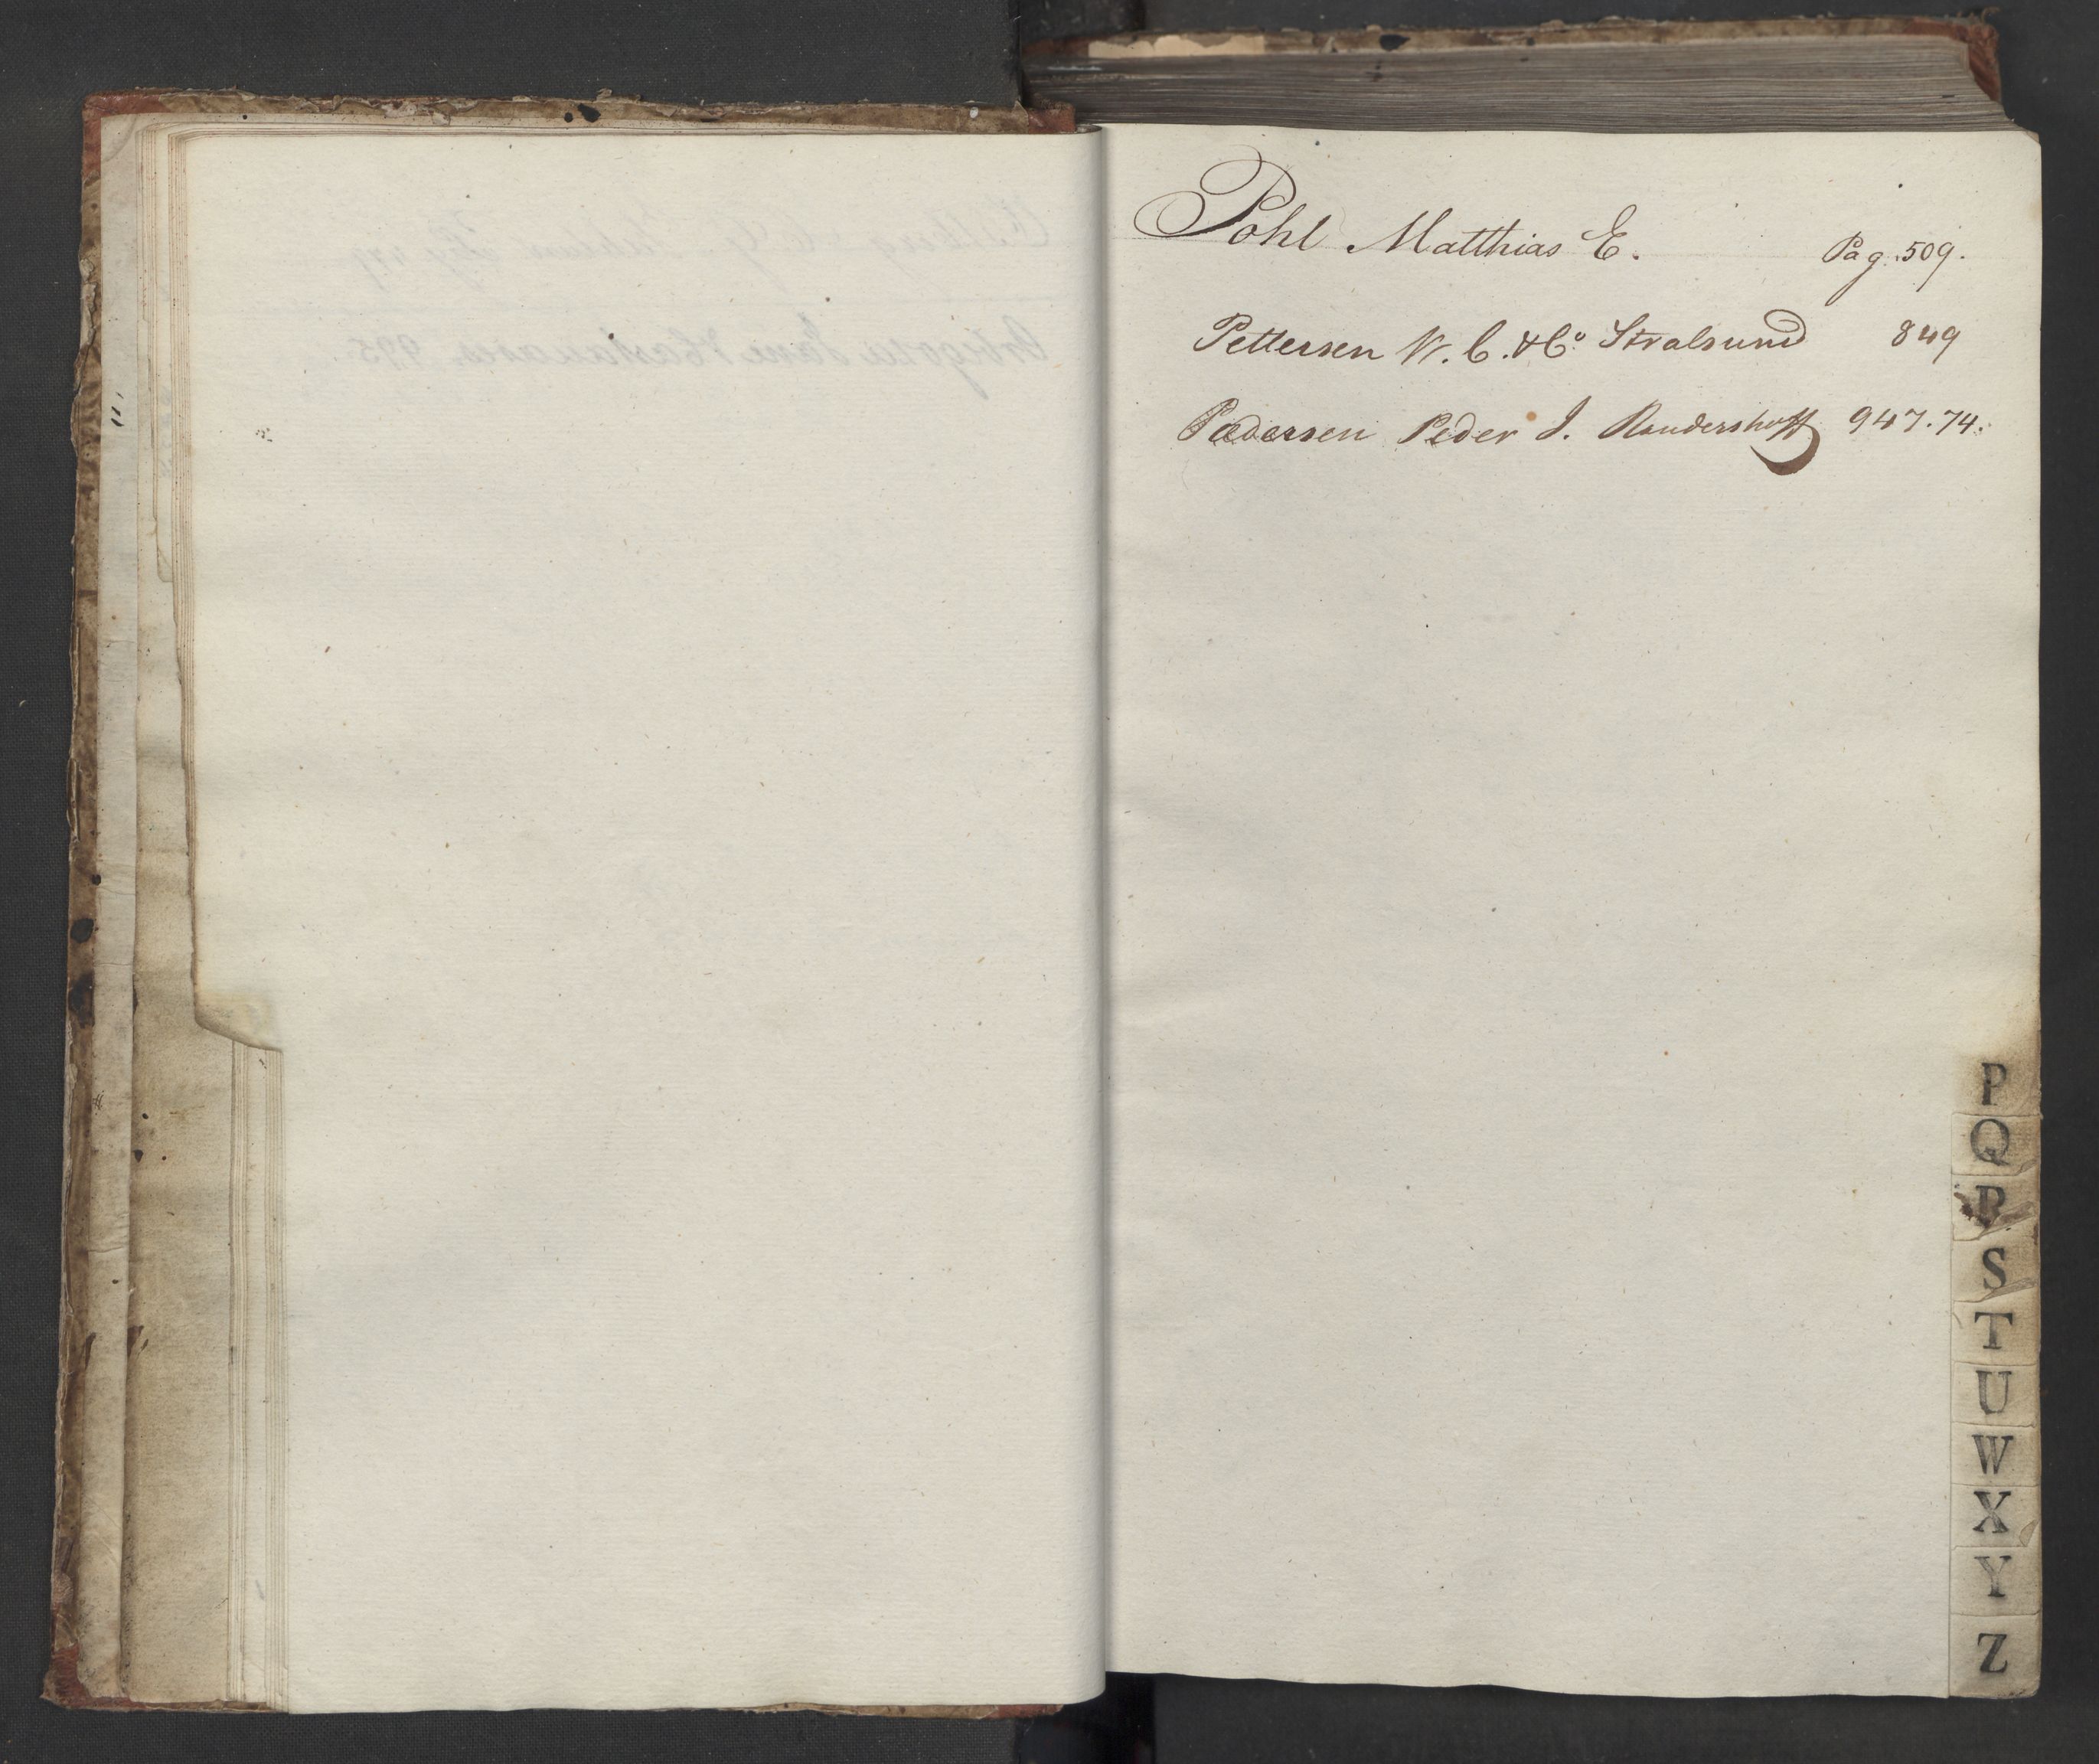 Pohl Matthias E. Pag. 509.
Pettersen N. C. & Co Stralsund 849
Pedersen Peder J. Randershoff 947.74.
P
Q
R
S
T
U
W
X
Y
Z